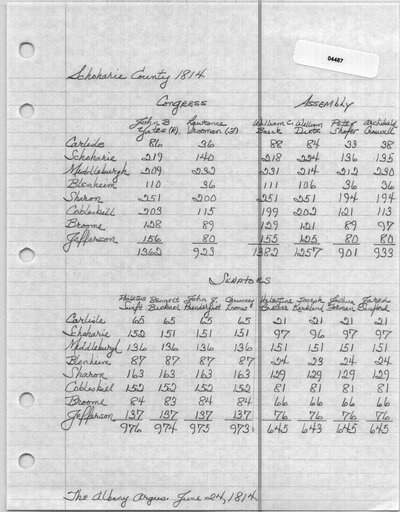 04487
Schoharie County 1814
Congress Assembly
John B Lawrence William C. William Peter Archibald
Yates (R) Vrooman (F) Bouck Dietz Shafer Croswell
Carlisle 86 36 88 84 33 38
Schoharie 219 140 218 224 136 135
Middleburgh 209 232 231 214 212 230
Blenheim 110 36 111 106 36 36
Sharon 251 200 251 251 194 194
Cobleskill 203 115 199 202 121 113
Broome 128 89 129 121 89 97
Jefferson 156 80 155 125 80 80
1362 923 1382 1257 901 933
Senators
Bennett John Valentine Joseph Joshua Jared
Swift Bicknell Loomis Kirkland
Carlisle 65 65 65 65 21 21 21 21
Schoharie 152 151 151 151 97 96 97 97
Middleburgh 136 136 136 136 151 151 151 151
Blenheim 87 87 87 87 24 23 24 24
Sharon 163 163 163 163 129 129 129 129
Cobleskill 152 152 152 152 81 81 81 81
Broome 84 83 84 84 66 66 66 66
Jefferson 137 137 137 137 76 76 76 76
976 974 975 973 645 643 645 645
The Albany Argus. June 24, 1814